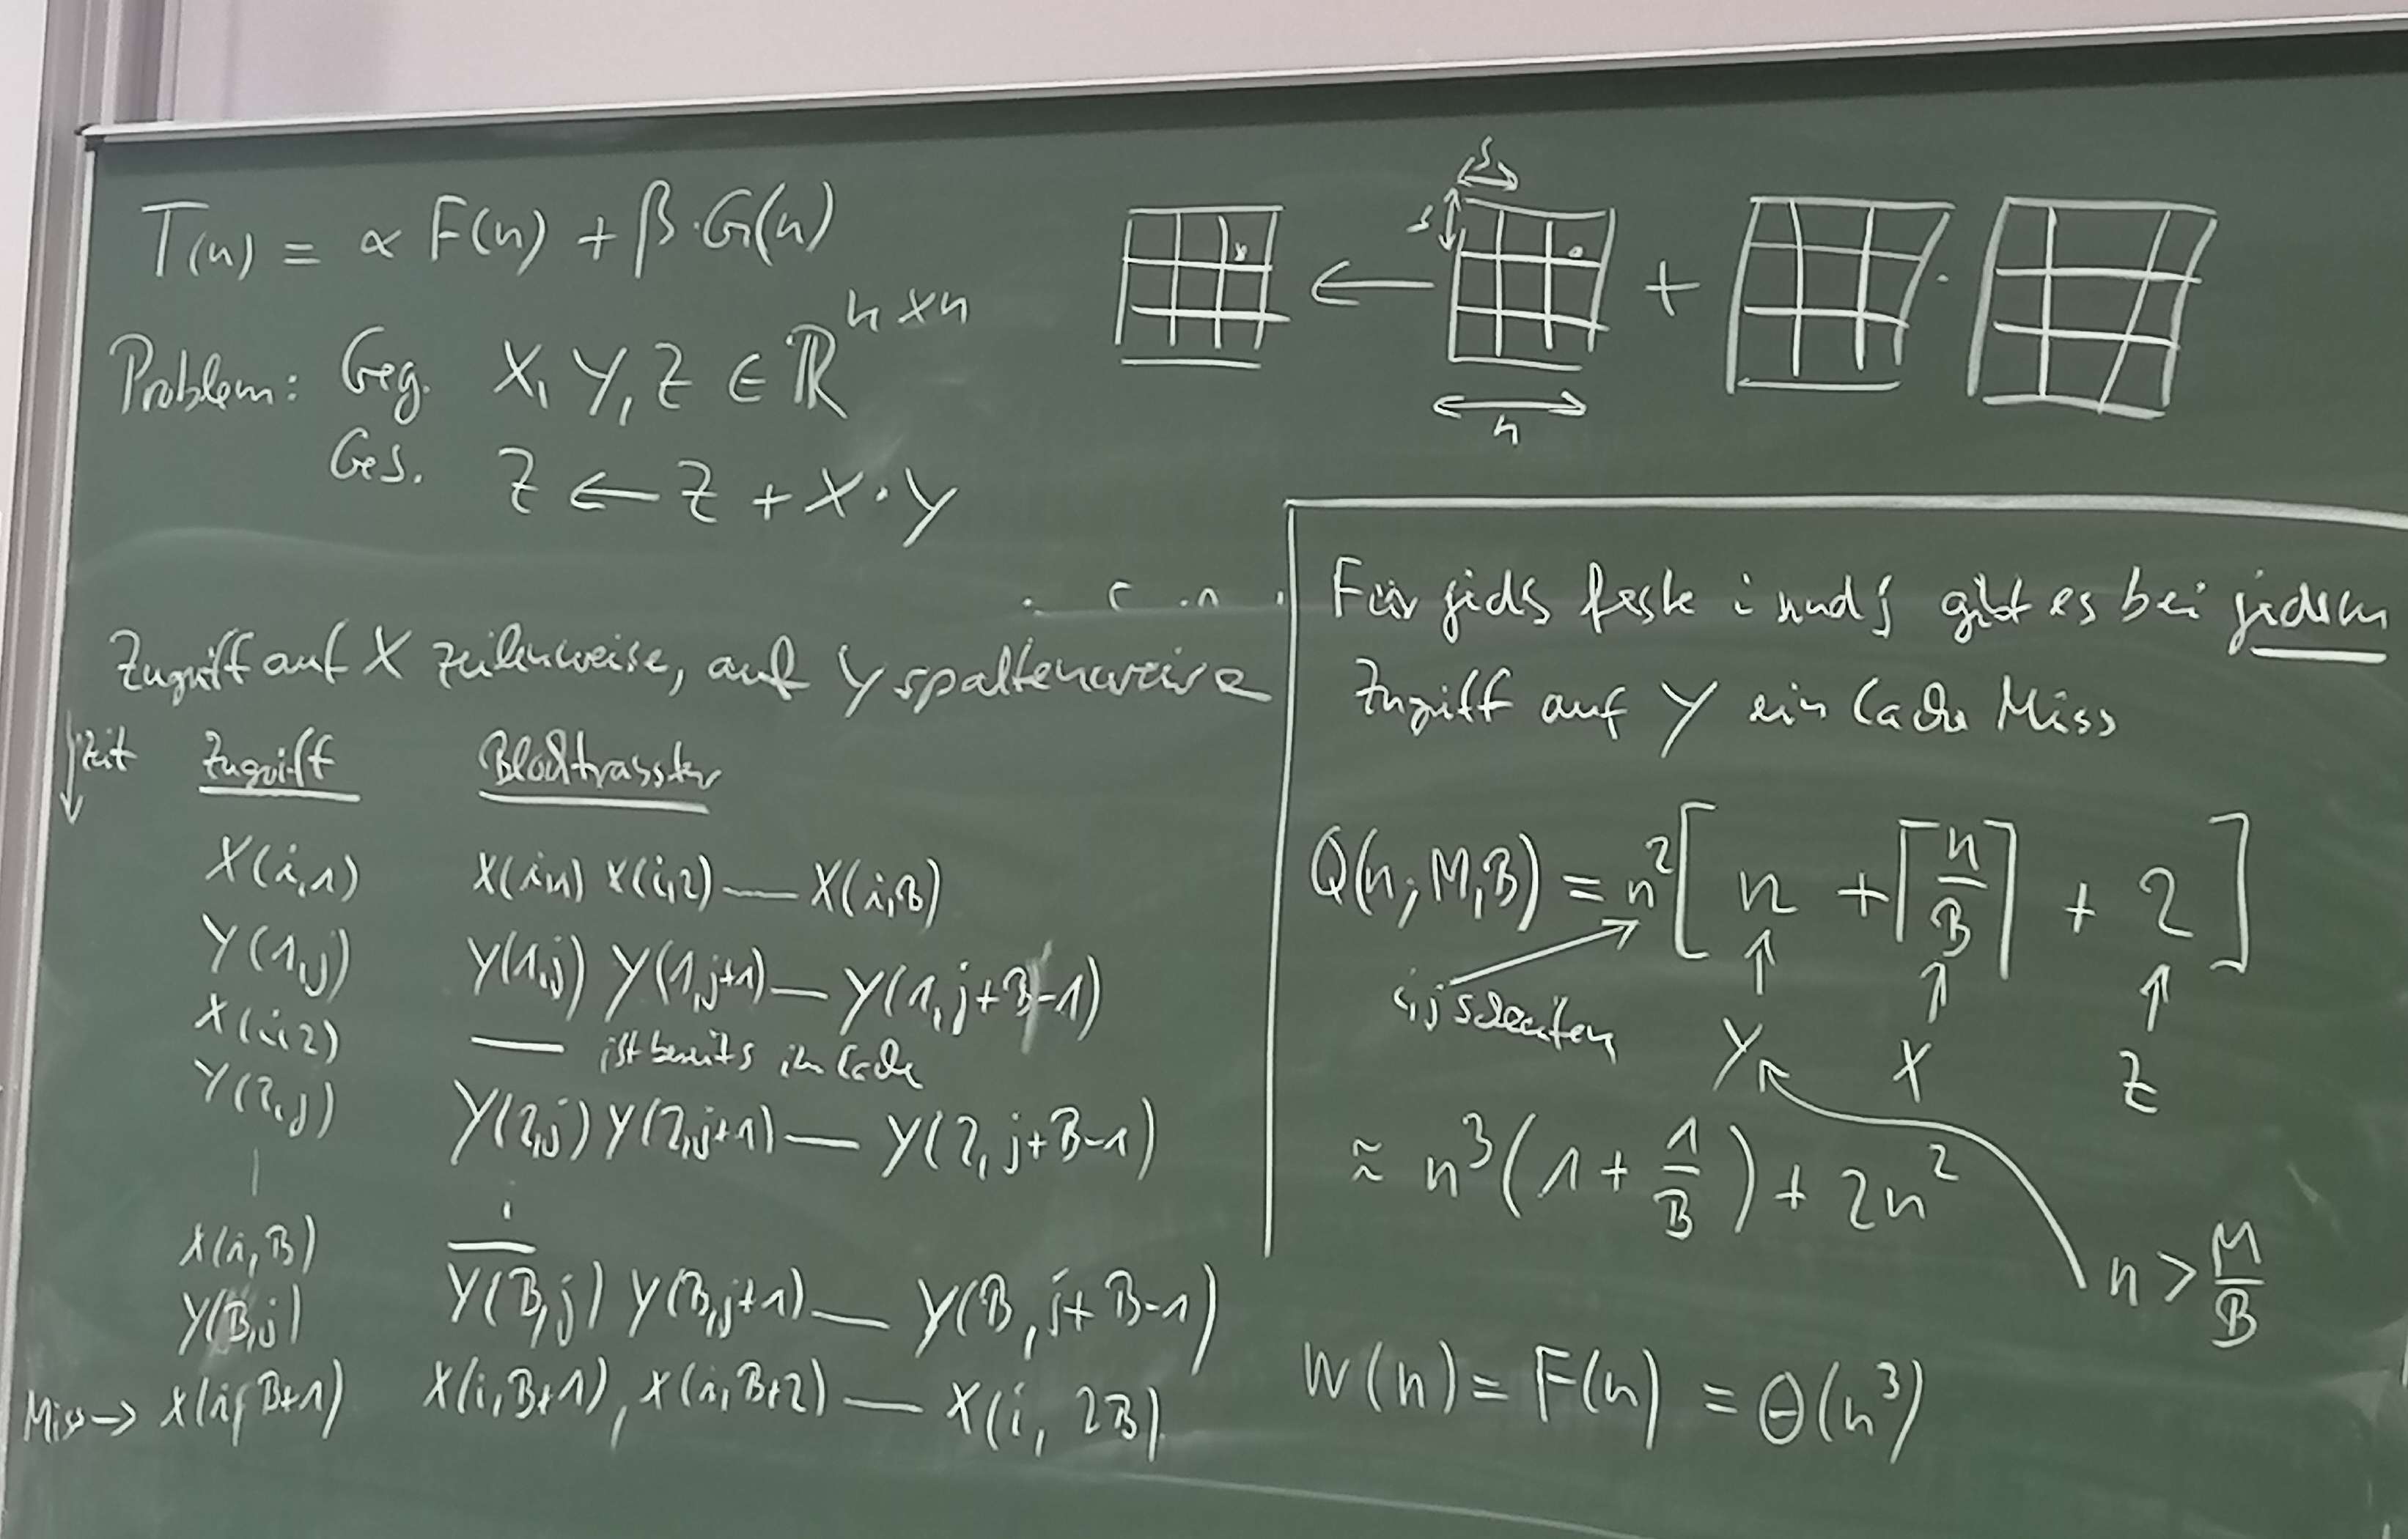 T(n) = α F(n) + β·G(n)
Problem: Geg. X, Y, Z ∈ ℝ^{n×n}
Ges. Z ← Z + X·Y
s
s
← + ·
n
Zugriff auf X zeilenweise, auf Y spaltenweise
Zeit Zugriff Blocktransfer
X(i,1) X(i,1) X(i,2) — X(i,B)
Y(1,j) Y(1,j) Y(1,j+1) — Y(1,j+B-1)
X(i,2) — ist bereits im Cache
Y(2,j) Y(2,j) Y(2,j+1) — Y(2,j+B-1)
X(i,B) —
Y(B,j) Y(B,j) Y(B,j+1) — Y(B,j+B-1)
Miss → X(i,B+1) X(i,B+1), X(i,B+2) — X(i,2B)
Für jedes feste i und j gibt es bei jedem
Zugriff auf Y ein Cache Miss
Q(n; M,B) = n²[ n + ⌈n/B⌉ + 2 ]
i,j Schleifen Y X Z
≈ n³(1 + 1/B) + 2n²
n > M/B
W(n) = F(n) = Θ(n³)